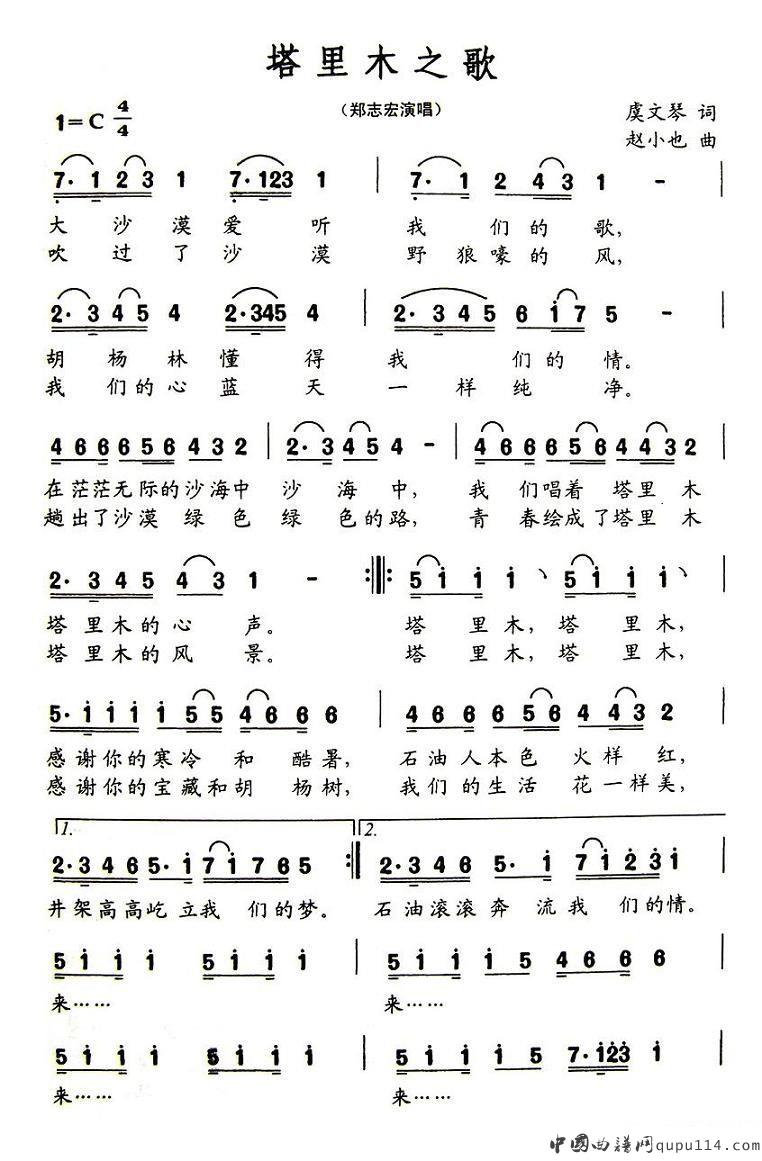 塔里木之歌
（郑志宏演唱）
1=C 4/4
虞文琴 词
赵小也 曲
7·1 2 3 1 7·123 1 | 7·1 2 4 3 1 - |
大沙漠爱听 我们的歌,
吹过了沙漠 野狼嚎的风,
2·3 4 5 4 2·345 4 | 2·3 4 5 6 i 7 5 - |
胡杨林懂得 我们的情。
我们的心蓝天 一样纯净。
4 6 6 6 5 6 4 3 2 | 2·3 4 5 4 - | 4 6 6 6 5 6 4 4 3 2
在茫茫无际的沙海中 沙海中, 我们唱着塔里木
趟出了沙漠绿色绿色的路, 青春绘成了塔里木
2·3 4 5 4 3 1 - :‖: 5 i i i 、 5 i i i 、
塔里木的心声。 塔里木,塔里木,
塔里木的风景。 塔里木,塔里木,
5·i i i i 5 5 4 6 6 6 | 4 6 6 6 5 6 4 4 3 2 |
感谢你的寒冷和酷暑, 石油人本色火样红,
感谢你的宝藏和胡杨树, 我们的生活花一样美,
1. 2.
2·3 4 6 5·i 7 i 7 6 5 :‖ 2·3 4 6 5·i 7 i 2 3 i |
井架高高屹立我们的梦。 石油滚滚奔流我们的情。
5 i i i 5 i i i | 5 i i i 4 6 6 6 |
来…… 来……
5 i i i 5 i i i | 5 i i i 5 7·i23 i |
来…… 来……
中国曲谱网qupu114.com